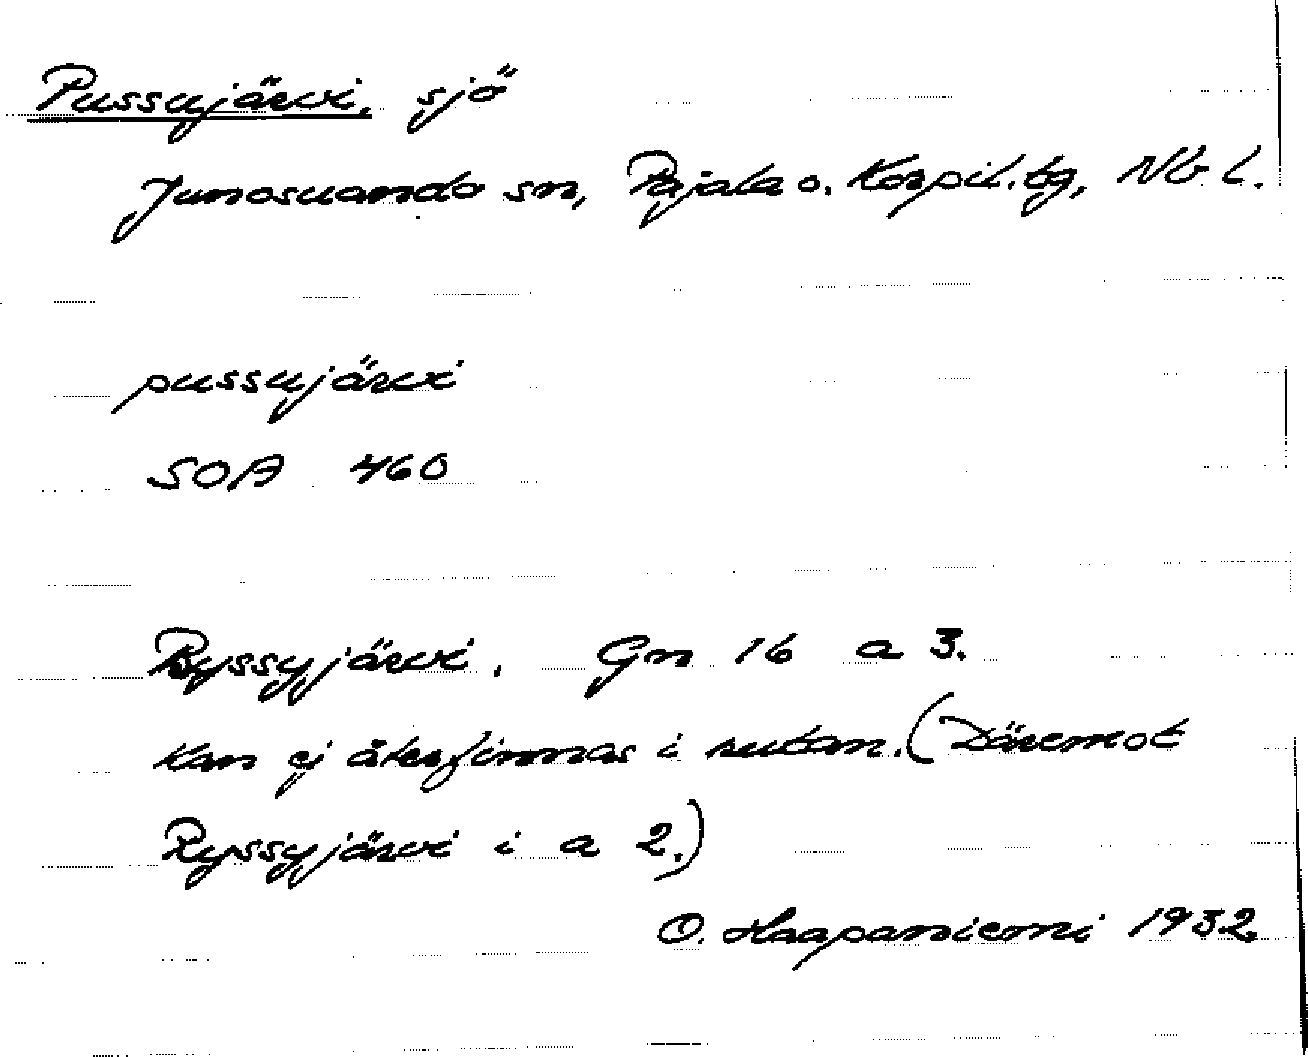 Pussujärvi, sjö
Junosuando sn, Pajala o. Korpil. tg, Nb. l.
pussujärvi
SOA 460
Ryssyjärvi. Gn 16 a 3.
Kan ej återfinnas i rutan. (Däremot
Ryssyjärvi i a 2.)
O. Haapaniemi 1932